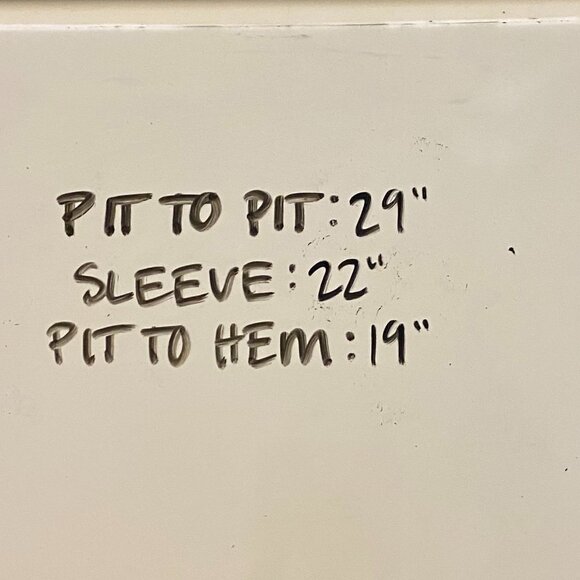 PIT TO PIT: 29"
SLEEVE: 22"
PIT TO HEM: 19"